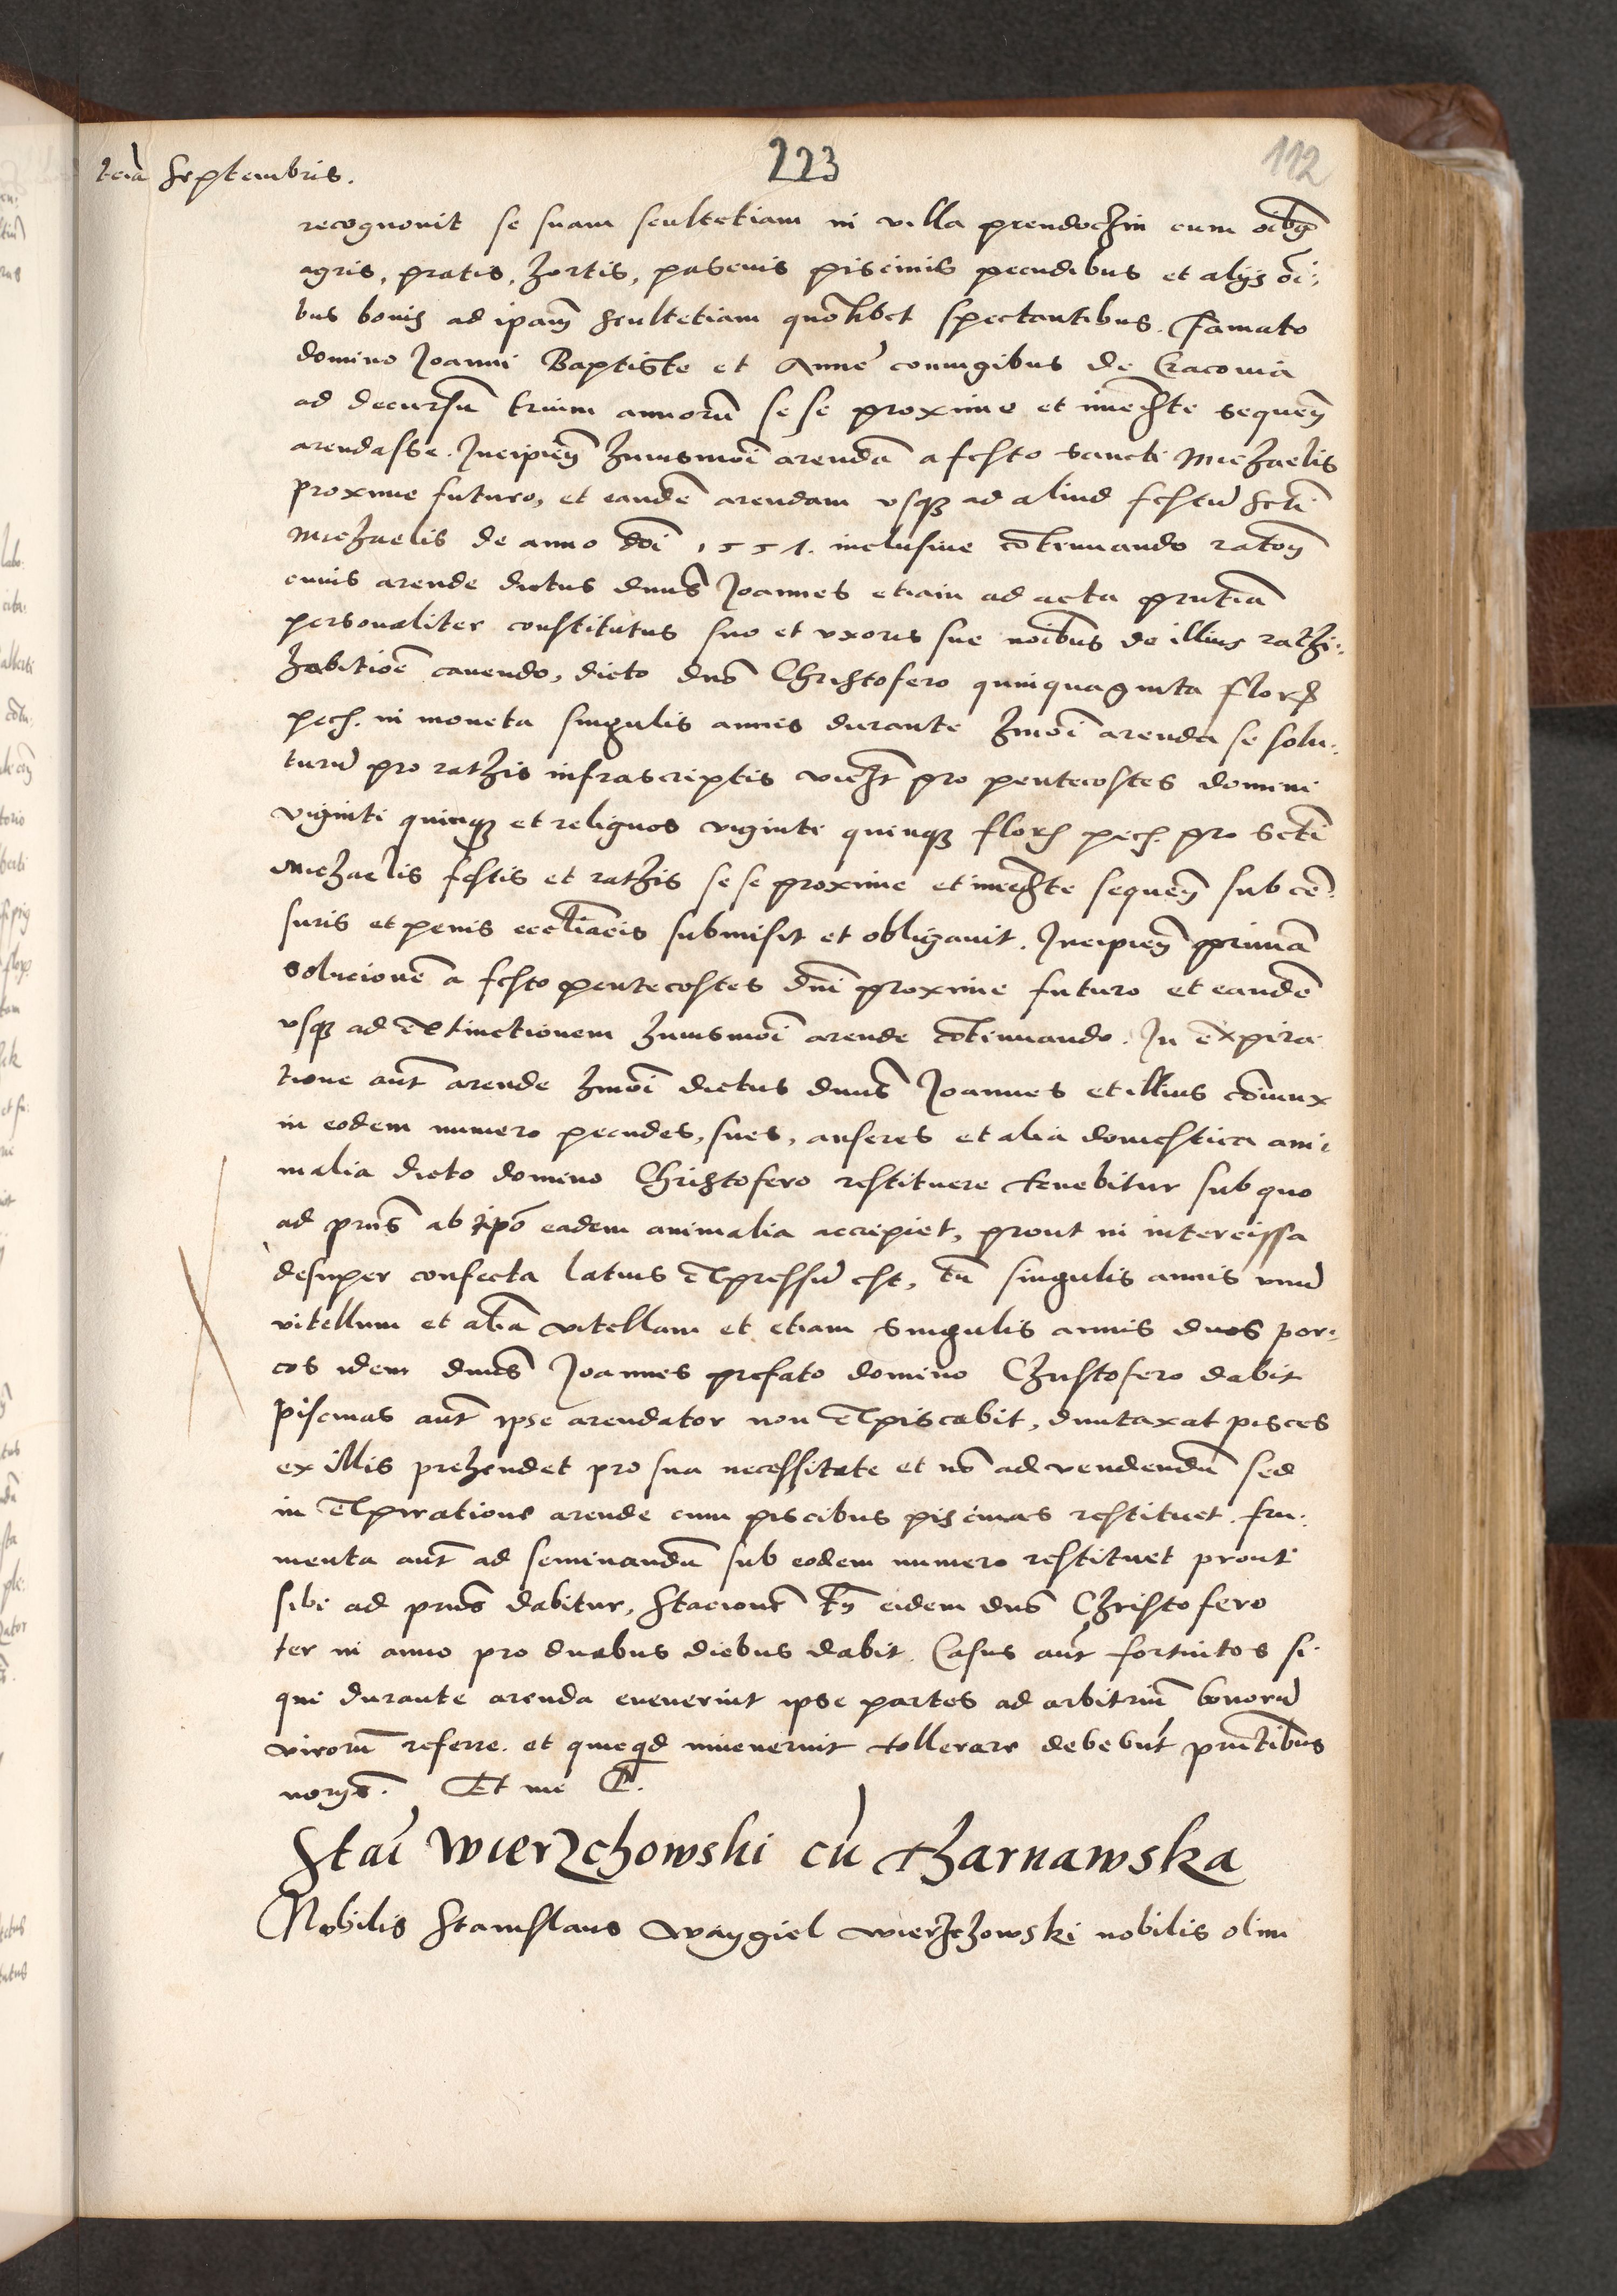 223
112
Septembris.
recognovit se suam scultetiam in villa prendoczin cum oībus
agris, pratis, hortis, pascuis piscinis pecudibus et alijs oī-
bus bonis ad ipam̄ scultetiam quōlibet spectantibus. Famato
domino Joanni Baptiste et Anne coniugibus de Cracovia
ad decursū trium annorū se se proxime et imēdte sequen̄
arendasse. Incipien̄ huiusmōi arendā a festo sancti Michaelis
proxime futuro, et eandē arendam vsqȝ ad aliud festū sctī
Michaelis de anno dnī 1551. inclusiue cōtinuando ratōn̄
cuius arende dictus dnus Joannes etiam ad acta pn̄tia
personaliter constitutus suo et vxoris sue noībus de illius rathi-
habitiōe cavendo, dicto dnō Christofero quinquaginta flor̄
pech. in moneta singulis annis durante hmōi arenda se solu-
turū pro rathis infrascriptis vidzt pro pentecostes domini
viginti quinqȝ et reliquos viginti quinqȝ flor̄ pech. pro sctī
Michaelis festis et rathis se se proxime et imēdte sequen̄ sub cē-
suris et penis ecclīacis submisit et obligavit. Incipien̄ primā
solucionē a festo pentecostes dnī proxime futuro et eandē
vsqȝ ad extinctionem huiusmōi arende cōtinuando. In expira-
tione aūt arende hmōi dictus dnus Joannes et illius cōiunx
in eodem numero pecudes, sues, anseres et alia domestica ani-
malia dicto domino Christofero restituere tenebitur sub quo
ad pn̄s ab ipō eadem animalia accipiet, prout in intercissa
desuper confecta latius expressū est, tū singulis annis vnū
vitellum et aliā vitellam et etiam singulis annis duos por-
cos idem dnus Joannes prefato domino Christofero dabit
piscinas aūt ipse arendator non expiscabit, duntaxat pisces
ex illis prehendet pro sua necessitate et nō ad vendendū sed
in expiratione arende cum piscibus piscinas restituet. fru-
menta aūt ad seminandū sub eodem numero restituet prout
sibi ad pn̄s dabitur, stacionē tn̄ eidem dnō Christofero
ter in anno pro duabus diebus dabit. Casus aūt fortuitos si
qui durante arenda evenerint ipse partes ad arbitriū bonorū
virorū referre. et quicqd invenerint tollerare debebūt pn̄tibus
Et me
Stāi Wierzchowski cū Tharnawska
Nobilis Stanislaus Waygiel Wierzchowski nobilis olim